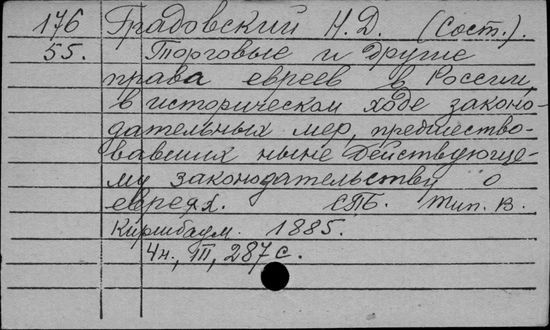 176 Градовский Н. Д. (Сост.).
55. Торговые и другие
права евреев в России
в историческом ходе законо-
дательных мер, предшество-
вавших ныне действующе-
му законодательству о
евреях. СПБ. тип. В.
Киршбаум. 1885.
4н., III, 287 с.